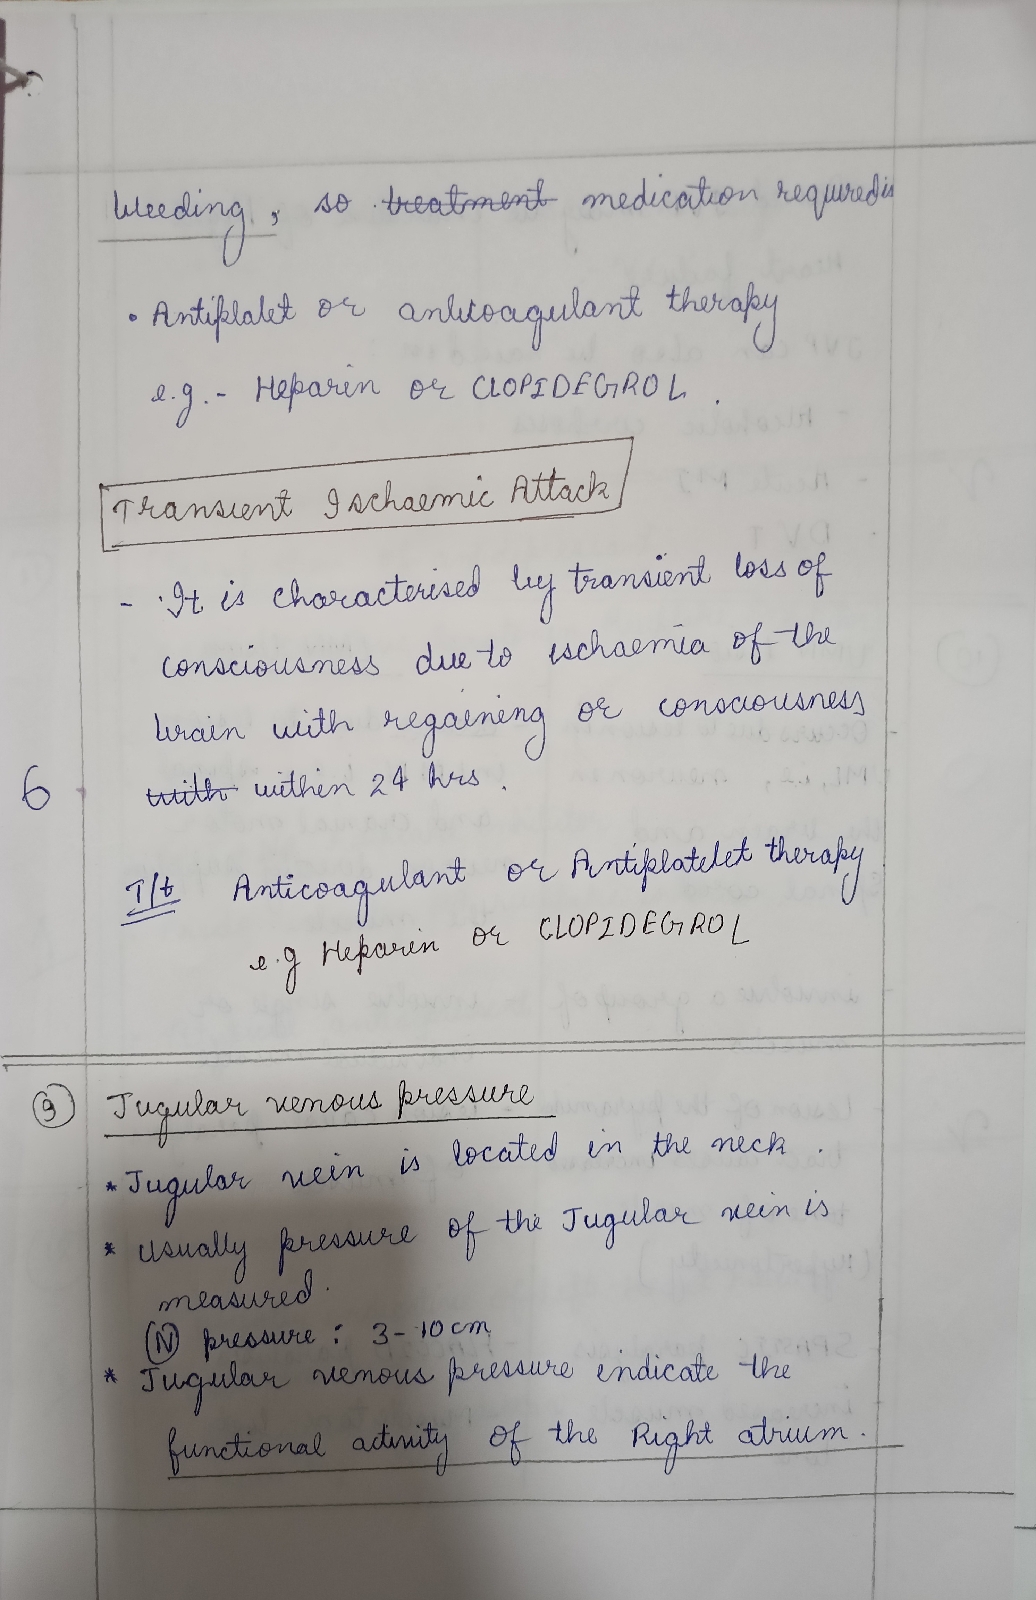 bleeding, so treatment medication required is
• Antiplalet or anticoagulant therapy
e.g.- Heparin or CLOPIDEGROL.
Transient Ischaemic Attack
- It is characterised by transient loss of
consciousness due to ischaemia of the
brain with regaining or consciousness
with within 24 hrs.
6
T/t Anticoagulant or Antiplatelet therapy
e.g Heparin or CLOPIDEGROL
9 Jugular venous pressure
* Jugular vein is located in the neck.
* Usually pressure of the Jugular vein is
measured.
(N) pressure : 3-10cm
* Jugular venous pressure indicate the
functional activity of the Right atrium.